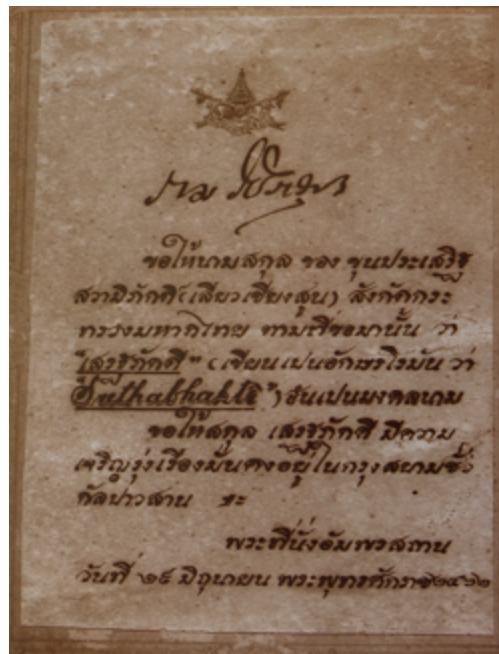 ราม วชิราวุธ
ขอให้นามสกุล ของ ขุนประเสริฐ
สวามิภักดิ์ (เสียวเซียงสุน) สังกัดกระ
ทรวงมหาดไทย ตามที่ขอมานั้น ว่า
"เสรฐภักดี" (เขียนเปนอักษรโรมัน ว่า
") อันเปนมงคลนาม
ขอให้สกุล เสรฐภักดี มีความ
เจริญรุ่งเรืองมั่นคงอยู่ในกรุงสยามชั่ว
กัลปาวสาน
พระที่นั่งอัมพรสถาน
วันที่ ๒๕ มิถุนายน